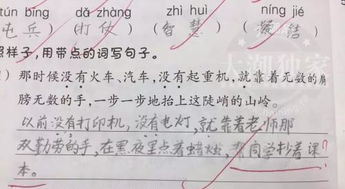 tún bīng dǎ zhàng zhì huì níng jié
(屯兵) (打仗) (智慧) (凝结)
照样子,用带点的词写句子。
)那时候没有火车、汽车,没有起重机,就靠着无数的肩
膀无数的手,一步一步地抬上这陡峭的山岭。
以前没有打印机,没有电灯,就靠着老师那
双勤劳的手,在黑夜里点着蜡烛,帮同学抄着课
本。
大潮独家